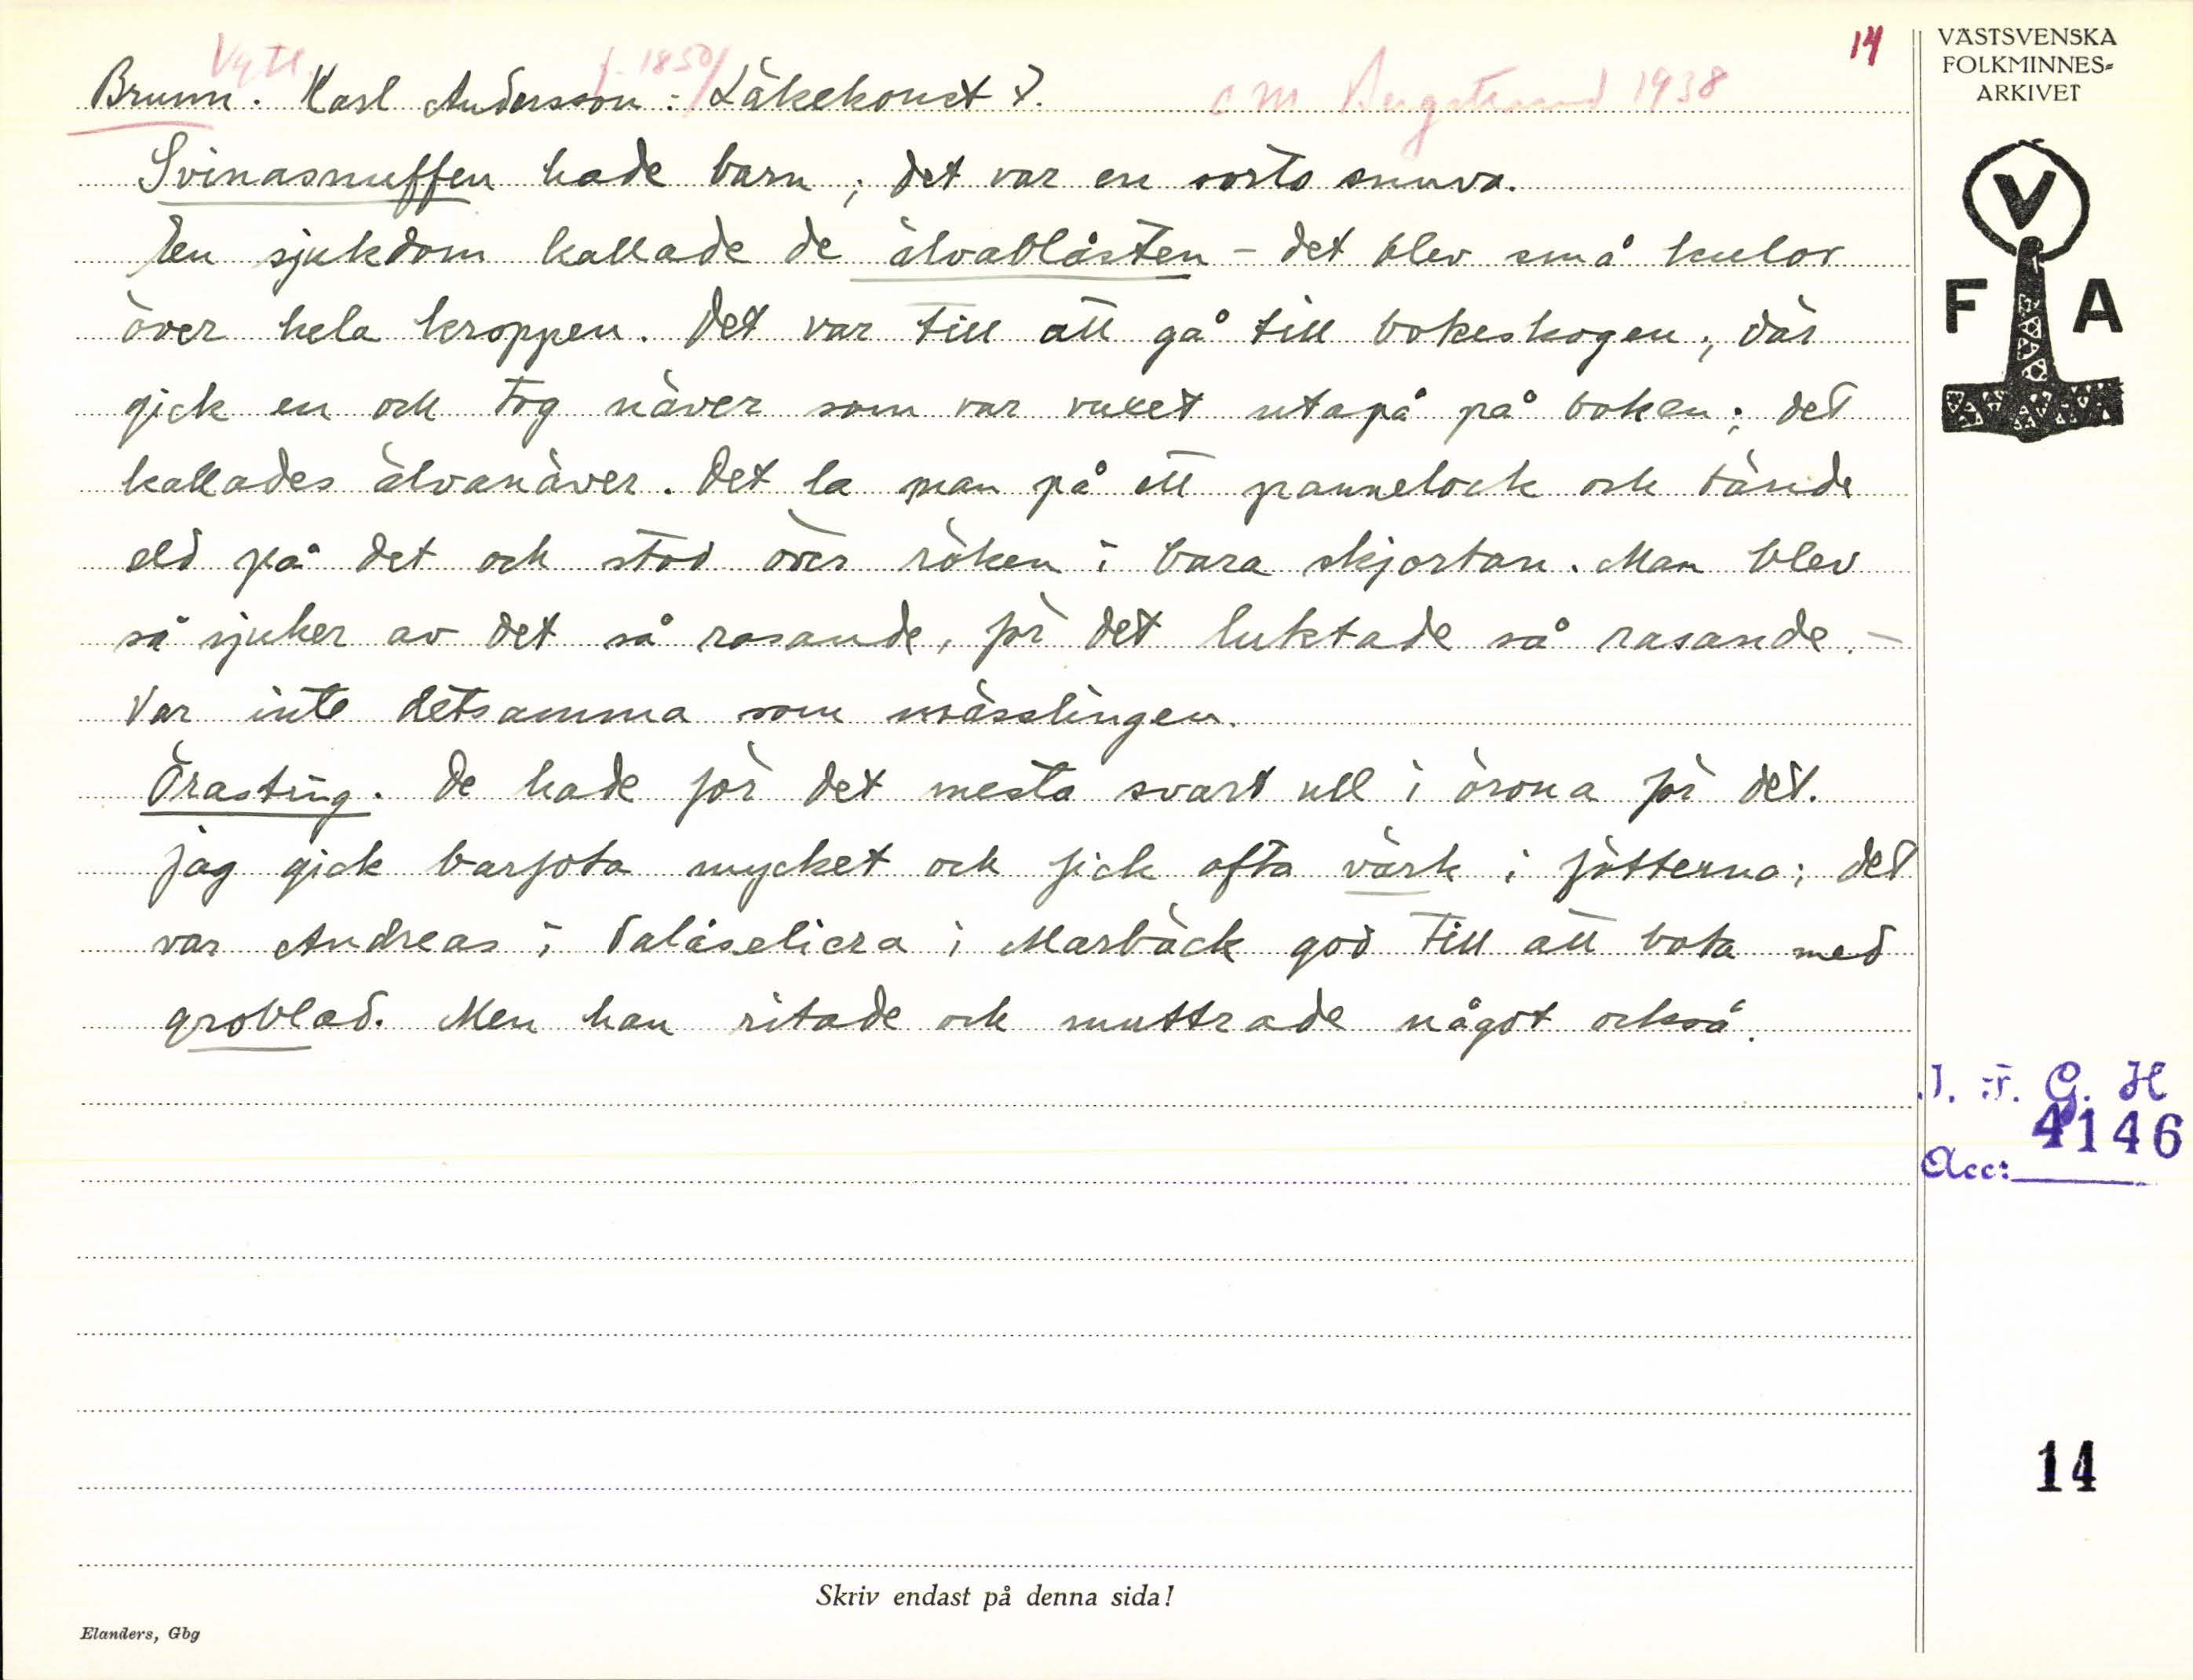 Vgtl.
f. 1850/
CM Bergstrand 1938
14
Brunn. Karl Andersson: Läkekonst
Svinasnuffen hade barn; det var en sorts snuva.
En sjukdom kallade de älvablåsten - det blev små kulor
över hela kroppen. Det var till att gå till bokeskogen; där
gick en och tog näver som var vuxet utapå på boken; det
kallades älvanäver. Det la man på ett pannelock och tände
eld på det och stod över röken i bara skjortan. Man blev
så sjuker av det så rasande, för det luktade så rasande. -
Var inte detsamma som mässlingen.
Örasting. De hade för det mesta svart ull i örona för det.
Jag gick barfota mycket och fick ofta värk i fötterna; det
var Andreas i i Marbäck god till att bota med
groblad. Men han ritade och muttrade något också.
VÄSTSVENSKA
FOLKMINNES-
ARKIVET
V
F A
I. F. G. H
4146
Acc:
14
Skriv endast på denna sida!
Elanders, Gbg